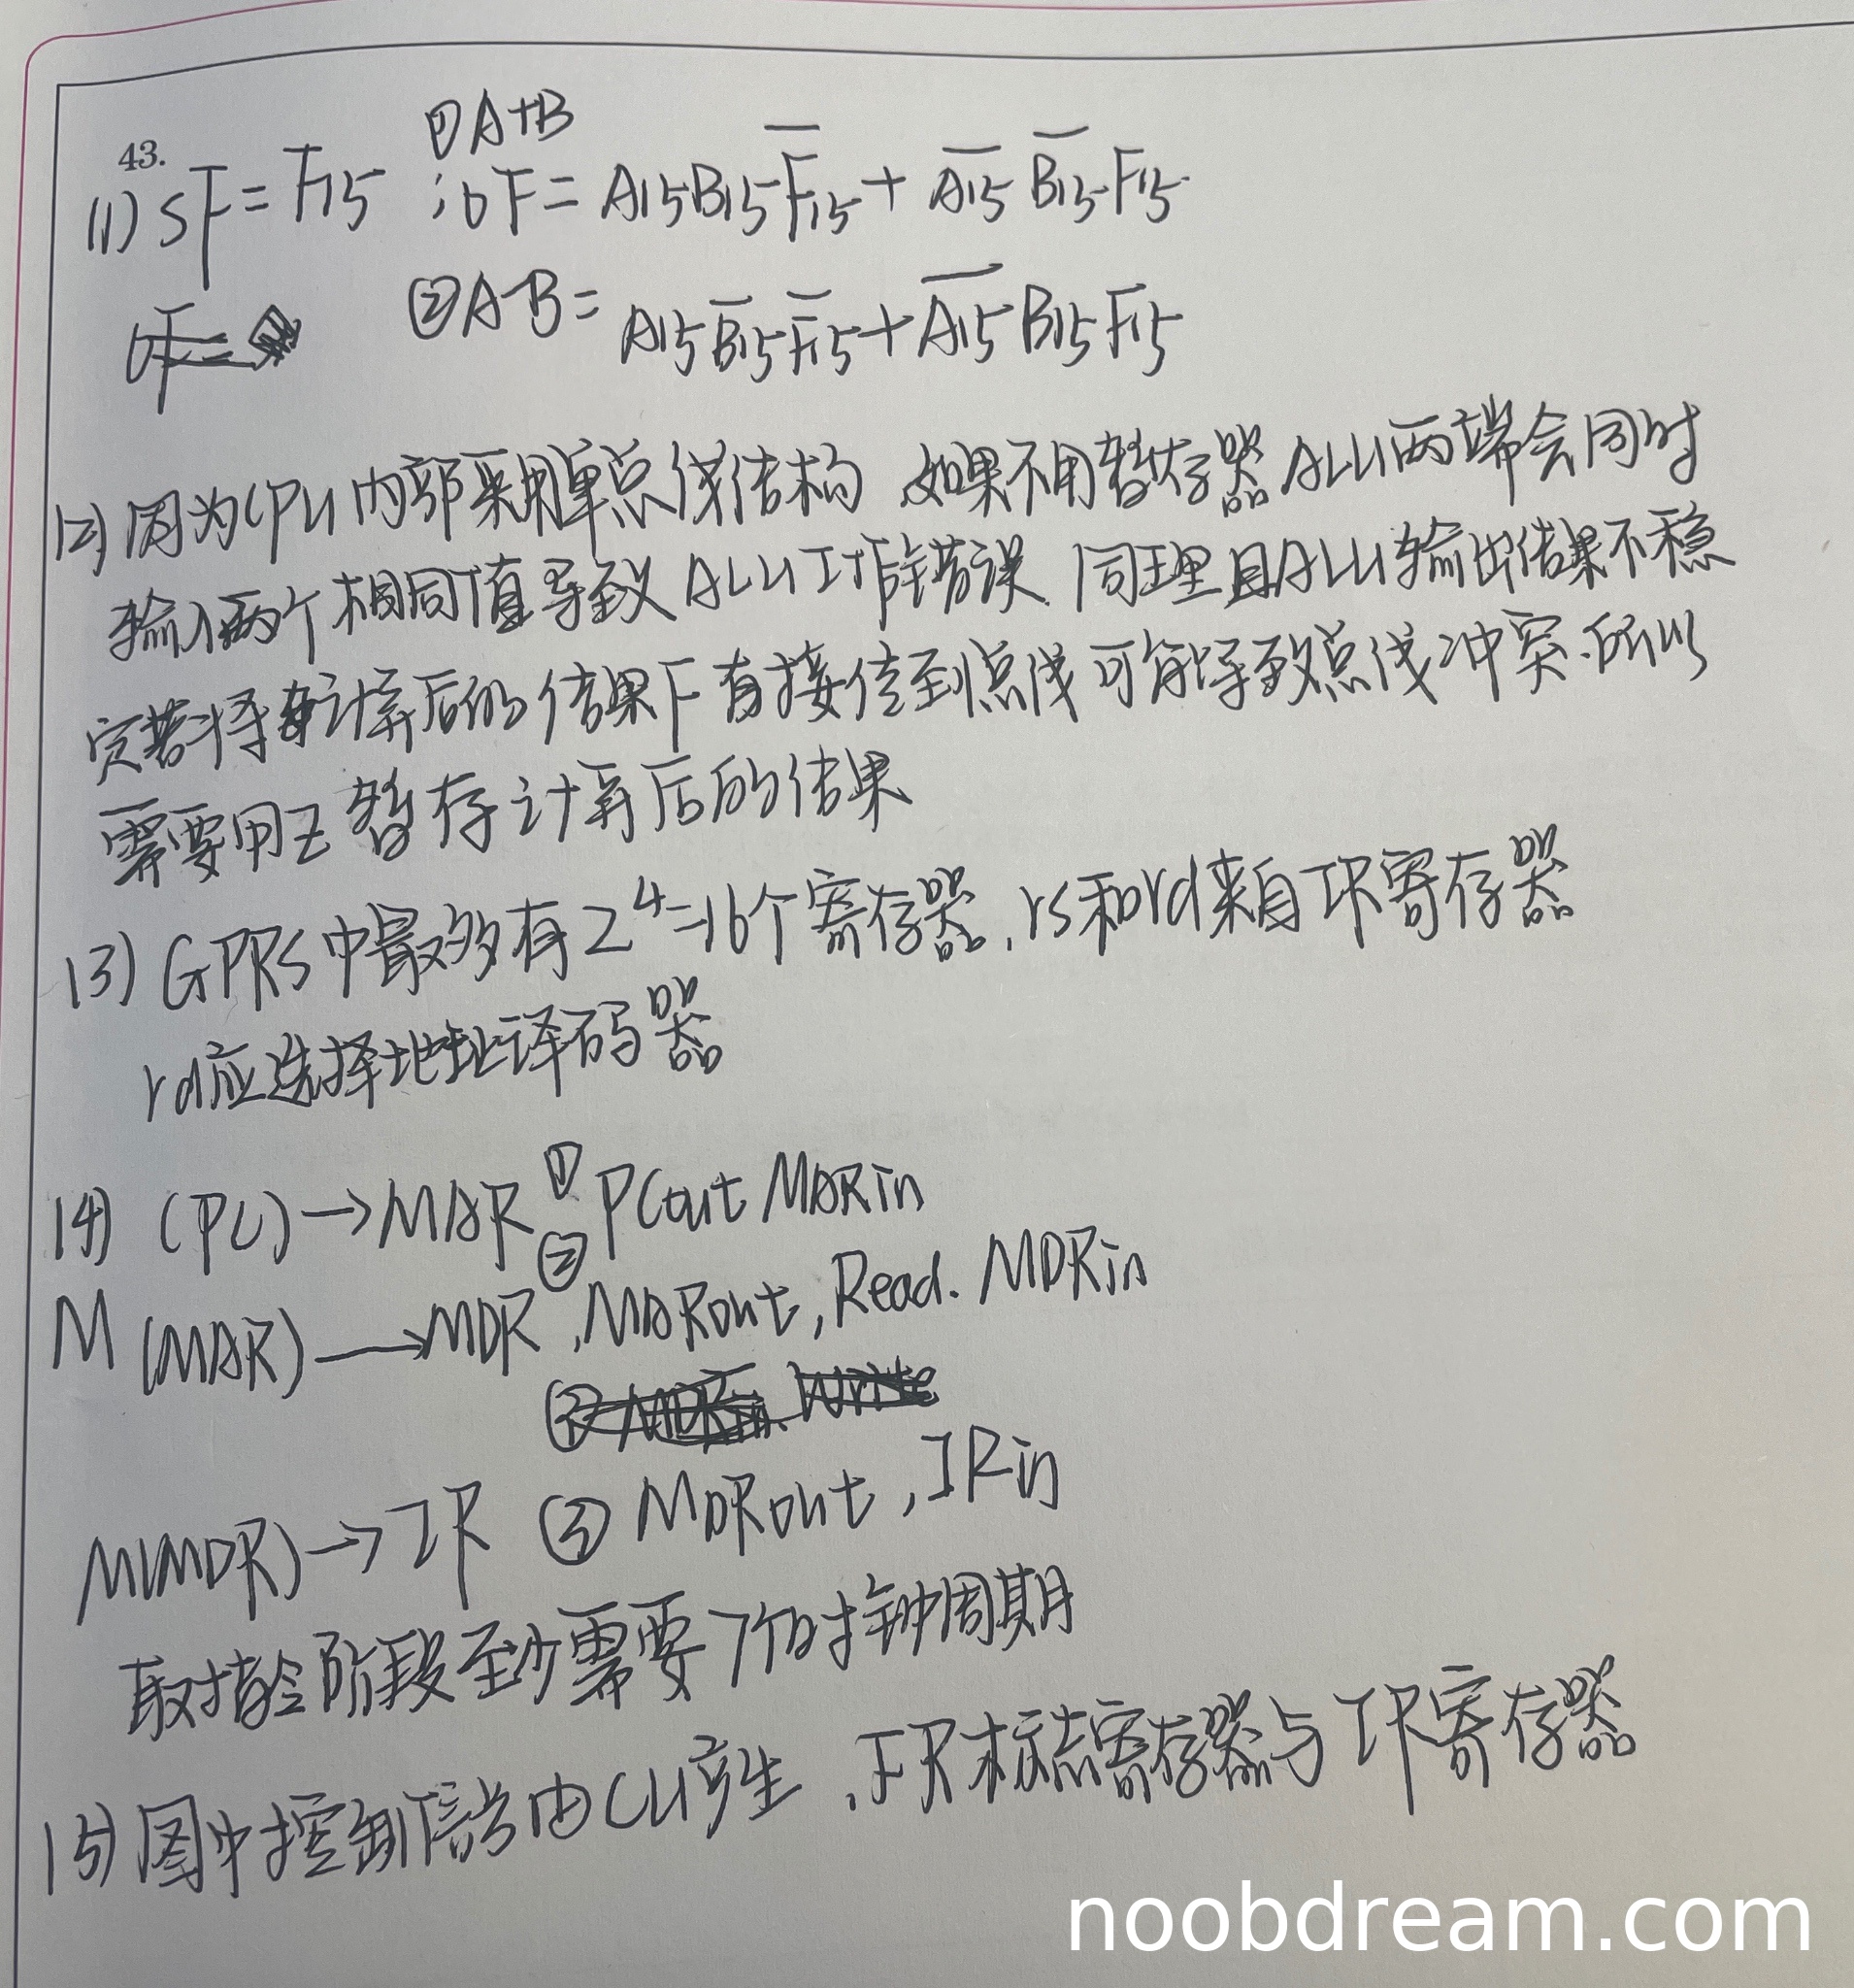 43.
(1) SF = F15 ; ①A+B OF = A15B15F̅15 + A̅15 B̅15 F15.
②A-B = A15B̅15F̅15 + A̅15 B15 F15
(2) 因为CPU内部采用单总线结构,如果不用暂存器ALU两端会同时
输入两个相同值导致ALU工作错误.同理且ALU输出结果不稳
定若将计算后的结果F直接传到总线可能导致总线冲突.所以
需要用Z暂存计算后的结果
(3) GPRs中最多有2⁴=16个寄存器,rs和rd来自IR寄存器
rd应选择地址译码器
(4) (PC)→MAR ① PCout MARin
M(MAR)→MDR ②, MARout, Read. MDRin
M(MDR)→IR ③ MDRout, IRin
取指令阶段至少需要7个时钟周期
(5) 图中控制信号由CU产生,FR标志寄存器与IR寄存器
noobdream.com